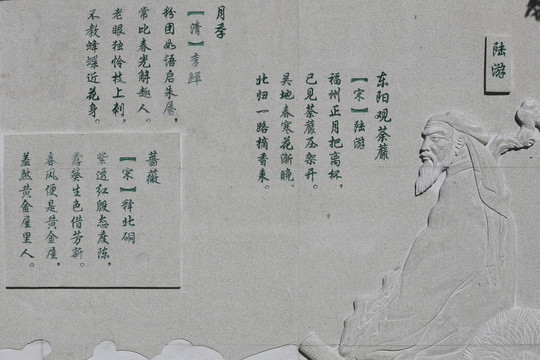 陆游
东阳观荼蘼
【宋】陆游
福州正月把离杯，
已见荼蘼压架开。
吴地春寒花渐晚，
北归一路摘香来。
月季
【清】李鱓
粉团如语启朱唇，
常比春光解趣人。
老眼独怜枝上刺，
不教蜂蝶近花身。
蔷薇
【宋】释北磵
紫透红殷态度陈，
露葵生色借芳新。
春风便是黄金屋，
羞煞黄金屋里人。